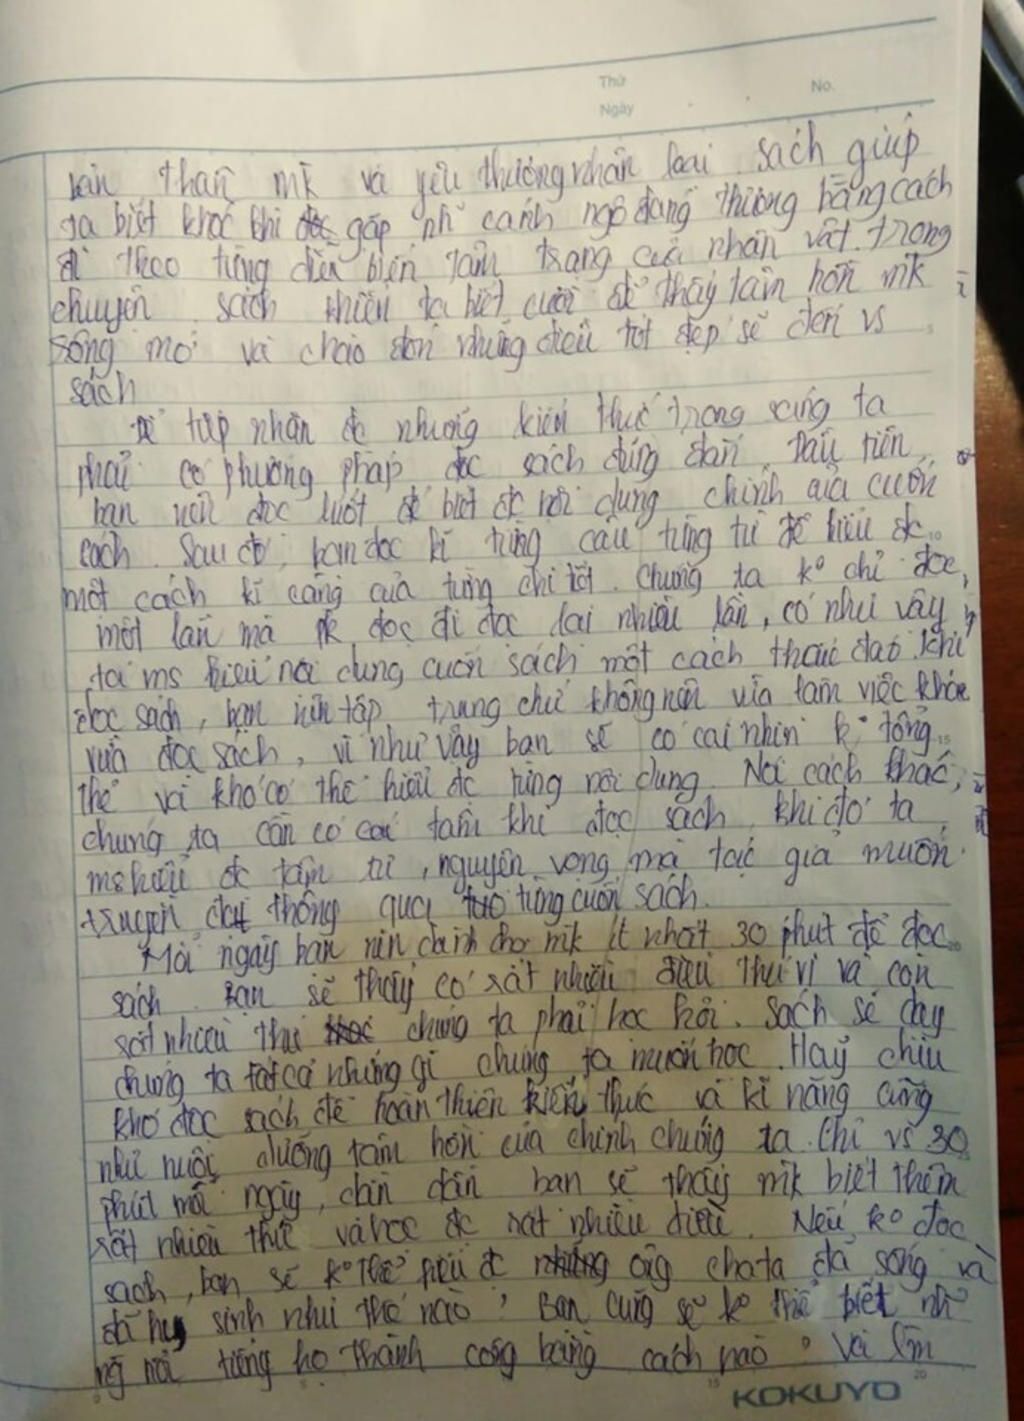 Thứ No.
Ngày
bản thân mk và yêu thương nhân loại. sách giúp
ta biết khóc khi gặp nh~ cảnh ngộ đáng thương bằng cách
đi theo từng diễn biến tâm trạng của nhân vật trong
chuyện. sách khiến ta biết cười để thấy tâm hồn mk
sống mơ và chào đón những điều tốt đẹp sẽ đến vs
sách
Để tiếp nhận đc những kiến thức trong sáng ta
phải có phương pháp đọc sách đúng đắn. Đầu tiên,
bạn nên đọc lướt để biết đc nội dung chính của cuốn
sách. Sau đó, bạn đọc kĩ từng câu từng từ để hiểu đc
một cách kĩ càng của từng chi tiết. Chúng ta ko chỉ đọc
một lần mà pk đọc đi đọc lại nhiều lần, có như vậy
ta ms hiểu nội dung cuốn sách một cách thấu đáo. Khi
đọc sách, bạn nên tập trung chứ không nên vừa làm việc khác
vừa đọc sách, vì như vậy bạn sẽ có cái nhìn k tổng
thể và khó có thể hiểu đc từng nội dung. Nói cách khác,
chúng ta cần có cái tâm khi đọc sách, khi đó ta
ms hiểu đc tâm tư, nguyện vọng mà tác giả muốn
truyền đạt thông qua từng cuốn sách.
Mỗi ngày bạn nên dành cho mk ít nhất 30 phút để đọc
sách. Bạn sẽ thấy có rất nhiều điều thú vị và còn
rất nhiều thứ chúng ta phải học hỏi. Sách sẽ dạy
chúng ta tất cả những gì chúng ta muốn học. Hãy chịu
khó đọc sách để hoàn thiện kiến thức và kĩ năng cũng
như nuôi dưỡng tâm hồn của chính chúng ta. Chỉ vs 30
phút mỗi ngày, dần dần bạn sẽ thấy mk biết thêm
rất nhiều thứ và học đc rất nhiều điều. Nếu ko đọc
sách, bạn sẽ ko thể hiểu đc ông cha ta đã sống và
đã hy sinh như thế nào? Bạn cũng sẽ ko thể biết nh~
ng nổi tiếng họ thành công bằng cách nào? Và lm
KOKUYO